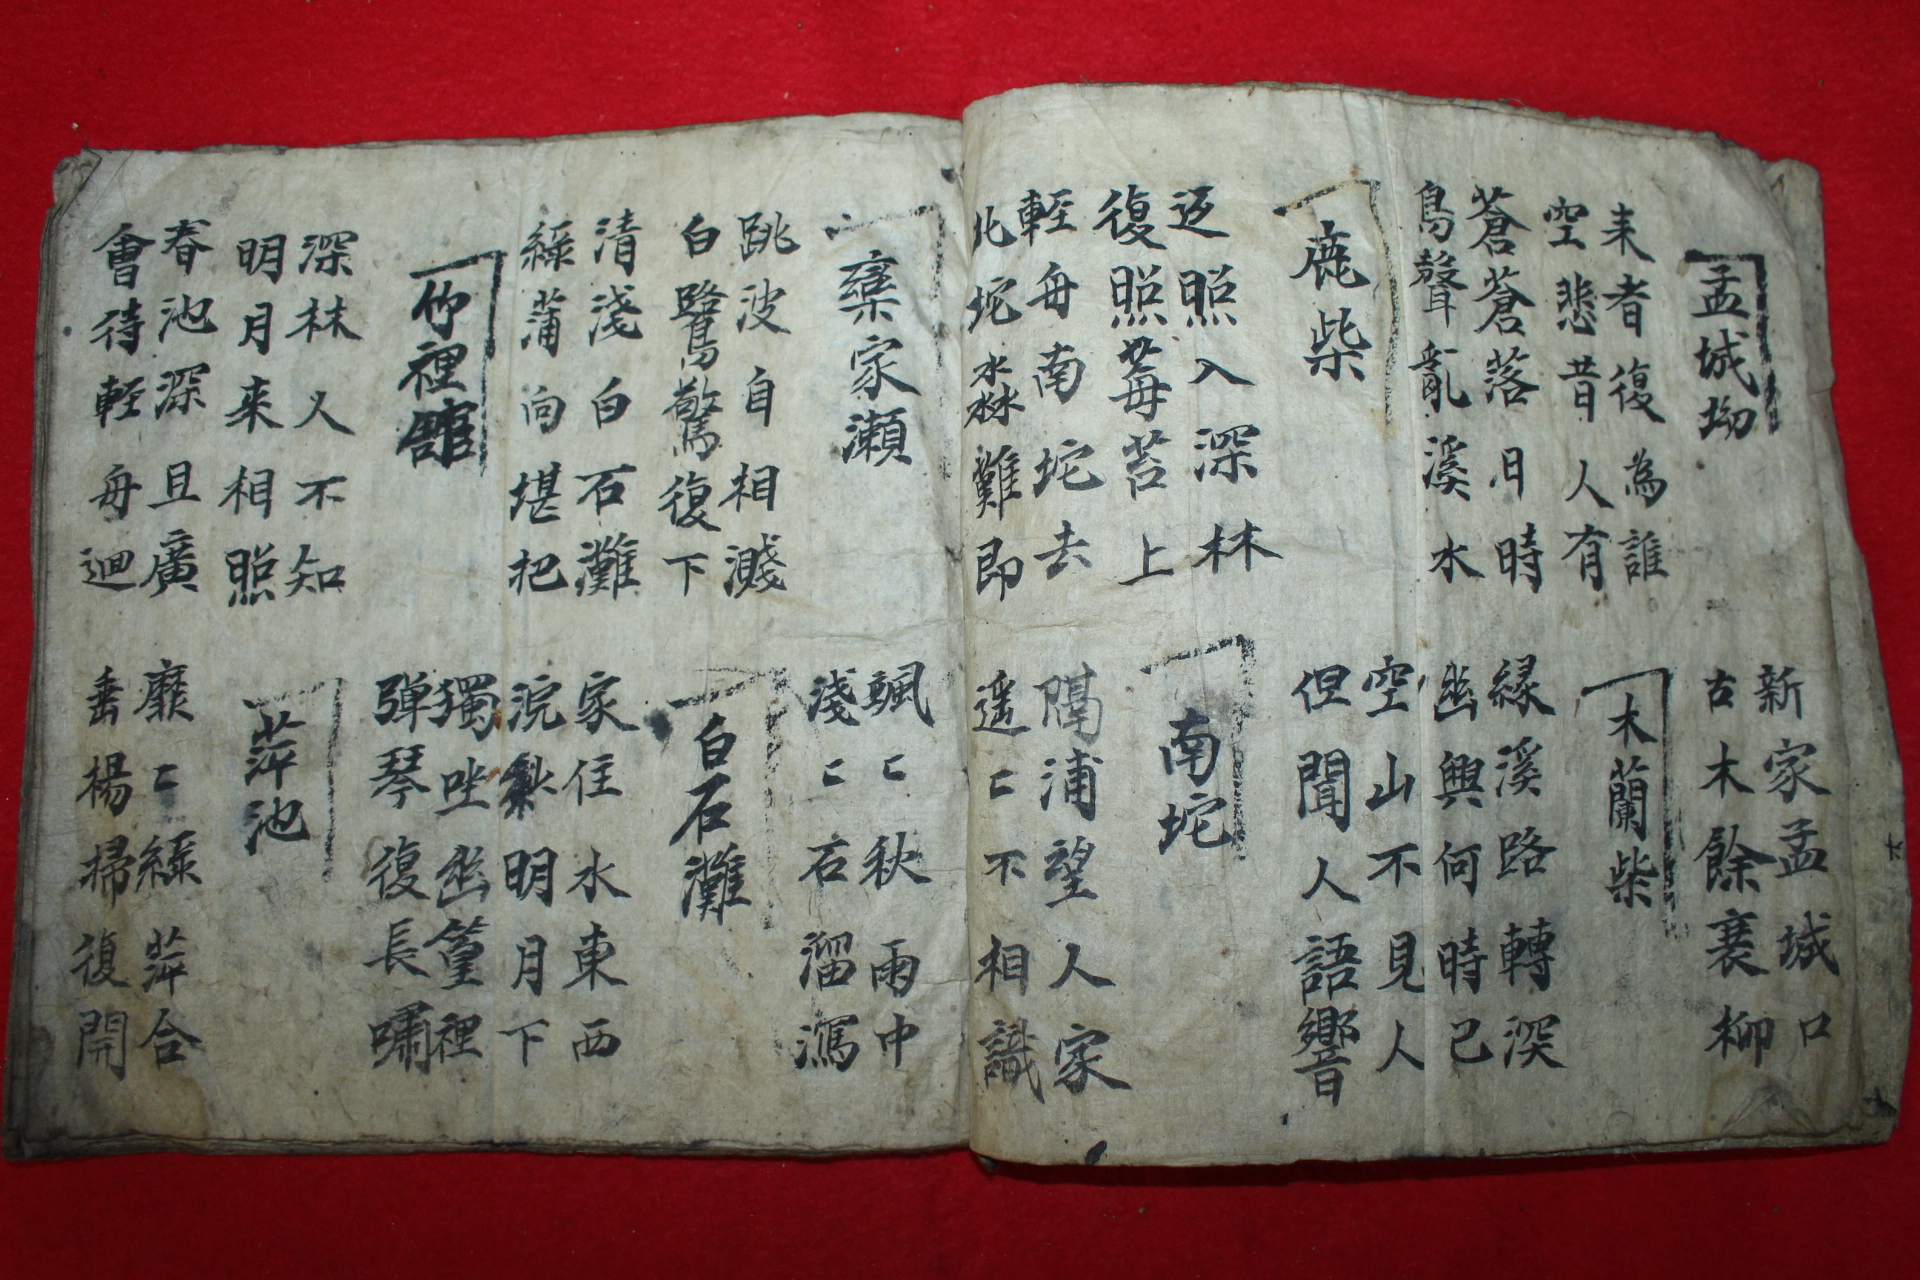 孟城坳
新家孟城口
古木餘衰柳
来者復為誰
空悲昔人有
木蘭柴
蒼蒼落日時
鳥聲亂溪水
緣溪路轉深
幽興何時已
鹿柴
空山不見人
但聞人語響
返照入深林
復照莓苔上
南垞
輕舟南垞去
北垞淼難即
隔浦望人家
遥〻不相識
欒家瀬
颯〻秋雨中
淺〻石溜瀉
跳波自相濺
白鷺驚復下
白石灘
清淺白石灘
綠蒲向堪把
家住水東西
浣紗明月下
竹裡館
獨坐幽篁裡
彈琴復長嘯
深林人不知
明月来相照
萍池
春池深且廣
會待軽舟迴
靡〻綠萍合
垂楊掃復開